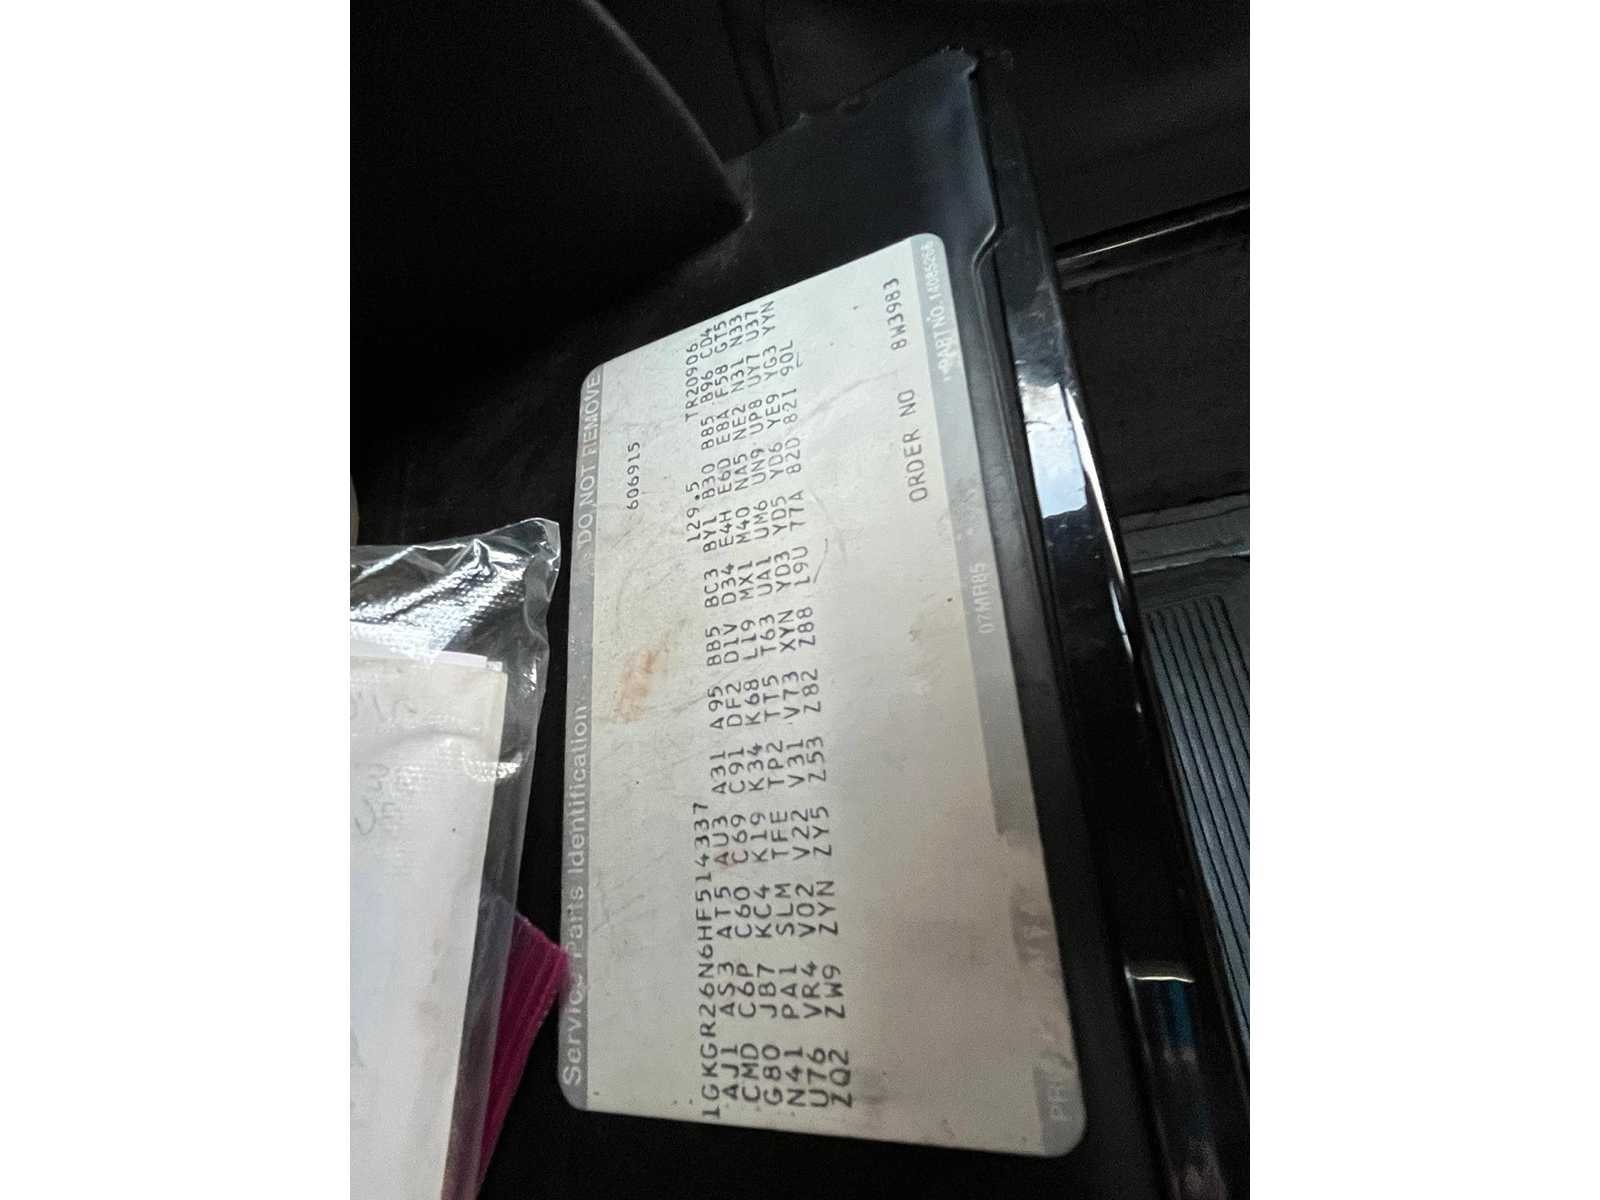 Service Parts Identification DO NOT REMOVE
606915
1GKGR26N6HF514337 129.5 TR20906
AJ1 AS3 AT5 AU3 A31 A95 BB5 BC3 BY1 B30 B85 B96 CD4
CMD C6P C60 C69 C91 DF2 D1V D34 E4H E6D E8A F58 GT5
G80 JB7 KC4 K19 K34 K68 L19 MX1 M40 NA5 NE2 N31 N33
N41 PA1 SLM TFE TP2 TT5 T63 UA1 UM6 UN9 UP8 UY7 U37
U76 VR4 V02 V22 V31 V73 XYN YD3 YD5 YD6 YE9 YG3 YYN
ZQ2 ZW9 ZYN ZY5 Z53 Z82 Z88 19U 77A 82D 82I 90L
ORDER NO 8W3983
07MR85 PART NO. 14085266